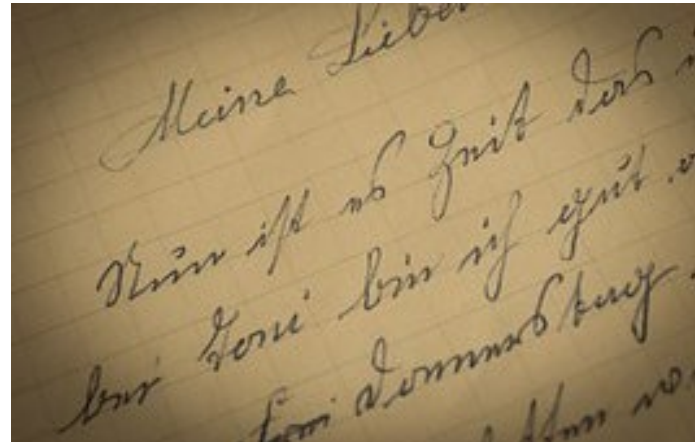 Meine Lieben
Nun ist es Zeit das
bei Toni bin ich gut
Donnerstag